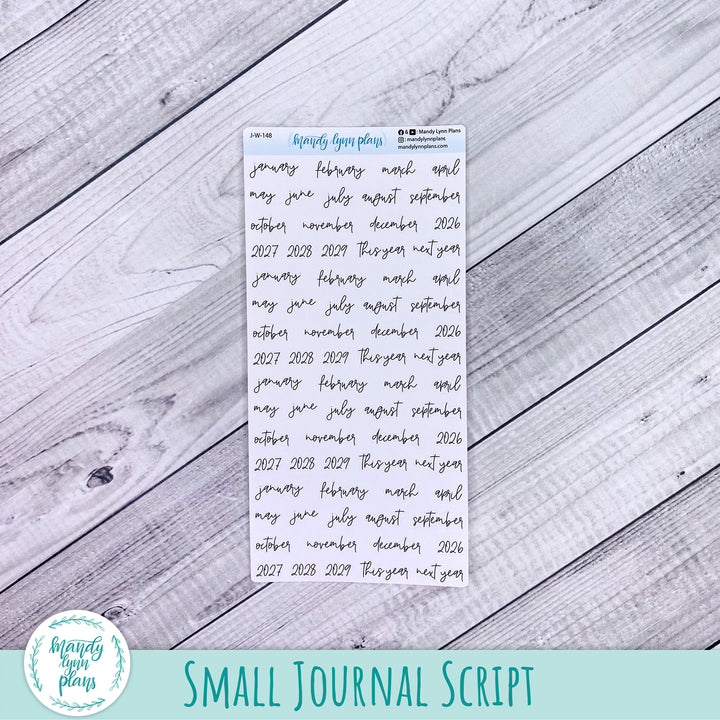 J-W-148
mandy lynn plans
& : Mandy Lynn Plans
: mandylynnplans
mandylynnplans.com
january february march april
may june july august september
october november december 2026
2027 2028 2029 this year next year
january february march april
may june july august september
october november december 2026
2027 2028 2029 this year next year
january february march april
may june july august september
october november december 2026
2027 2028 2029 this year next year
january february march april
may june july august september
october november december 2026
2027 2028 2029 this year next year
mandy
lynn
plans
Small Journal Script